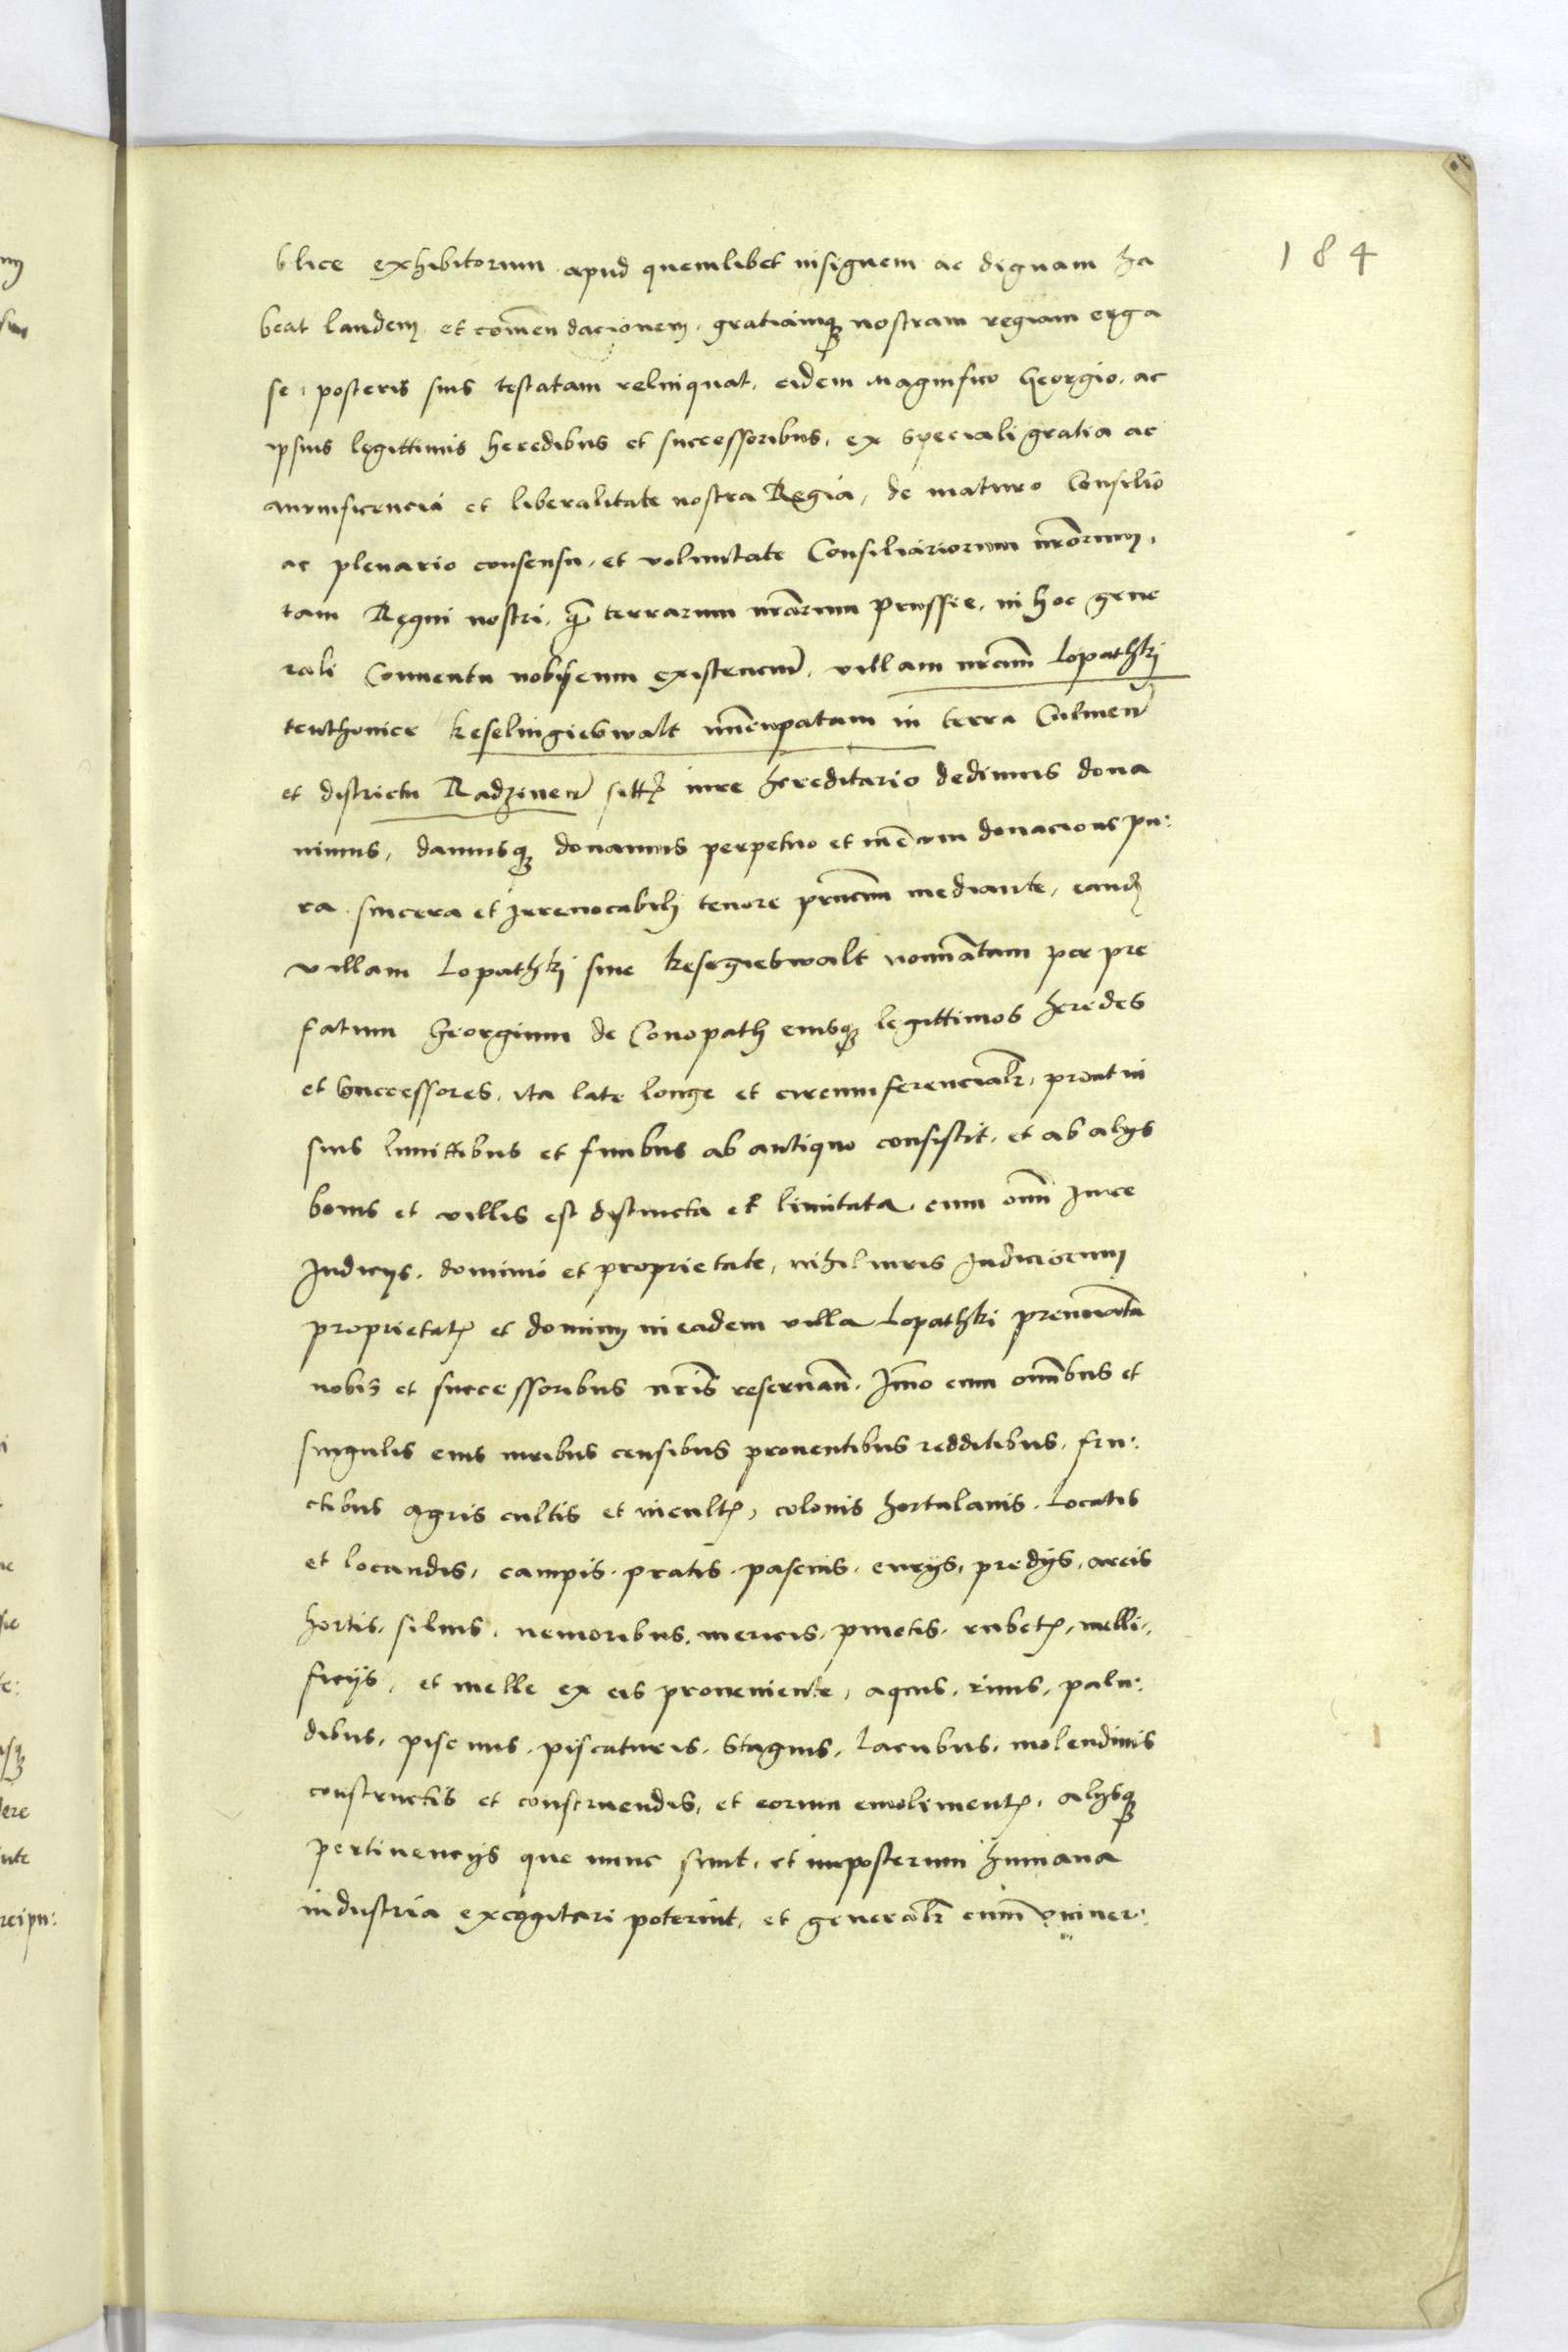 184
blice exhibitorum apud quemlibet insignem ac dignam ha
beat laudem et com̄endacionem, gratiamqꝫ nostram regiam erga
se, posteris suis testatam relinquat, eidem Magnifico Georgio, ac
ipsius legittimis heredibus et successoribus, ex speciali gratia ac
munificencia et liberalitate nostra Regia, de maturo Consilio
ac plenario consensu, et voluntate Consiliariorum nr̄orum,
tam Regni nostri, qͫ terrarum nr̄arum prussie, in hoc gene
rali Conuentu nobiscum existenciū, villam nr̄am Lopathki
teuthonice keselingiebwalt nūcupatam in terra Culmen̄
et districtu Radzinen̄ sitā iure hereditario dedimus dona
uimus, damusqꝫ donamus perpetuo et in ēuum donacione pu:
ra sincera et Irreuocabili tenore pn̄cium mediante, eandē
villam Lopathki siue kesegiebwalt nomīatam per pre
fatum Georgium de Conopath eiusqꝫ legittimos heredes
et Successores, ita late longe et circumferencialr̄, prout in
suis limittibus et finibus ab antiquo consistit, et ab alijs
bonis et villis est distincta et limitata, cum om̄i Iure
Iudicijs, dominio et proprietate, nihil iuris Iudiciorum
proprietatꝭ et dominij in eadem villa Lopathki prenoīata
nobis et successoribus nr̄is reseruan̄. Im̄o cum om̄ibus et
singulis eius iuribus censibus prouentibus redditibus, fru:
ctibus agris cultis et incultꝭ, colonis hortulanis, locatis
et locandis, campis, pratis, pascuis, curijs, predijs, areis
hortis, siluis, nemoribus, mericis, pinetis, rubetꝭ, melli,
ficijs, et melle ex eis proueniente, aquis, riuis, palu:
dibus, piscinis, piscaturis, stagnis, lacubus, molendinis
constructis et construendis, et eorum emolimentꝭ, alijsqꝫ
pertinencijs que nunc sunt, et imposterum humana
industria excogitari poterint, et generalr̄ cum vniuer: